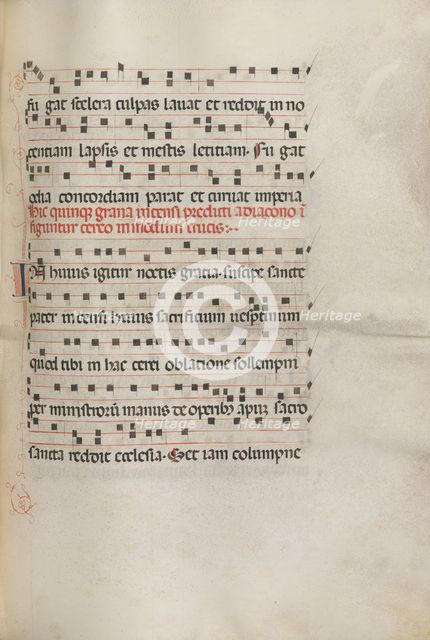 fu gat scelera culpas lavat et reddit in no
centiam lapsis et mestis letitiam. Fu gat
odia concordiam parat et curvat imperia
Hic quinqȝ grana incensi predicti a diacono ī
figuntur cereo in modum crucis:
In huius igitur noctis gratia. suscipe sancte
pater incensi huius sacrificium vespertinum
quod tibi in hac cerei oblatione sollempni
per ministrorū manus de operibȝ apum sacro
sancta reddit ecclesia. Set iam columpne
Heritage Images